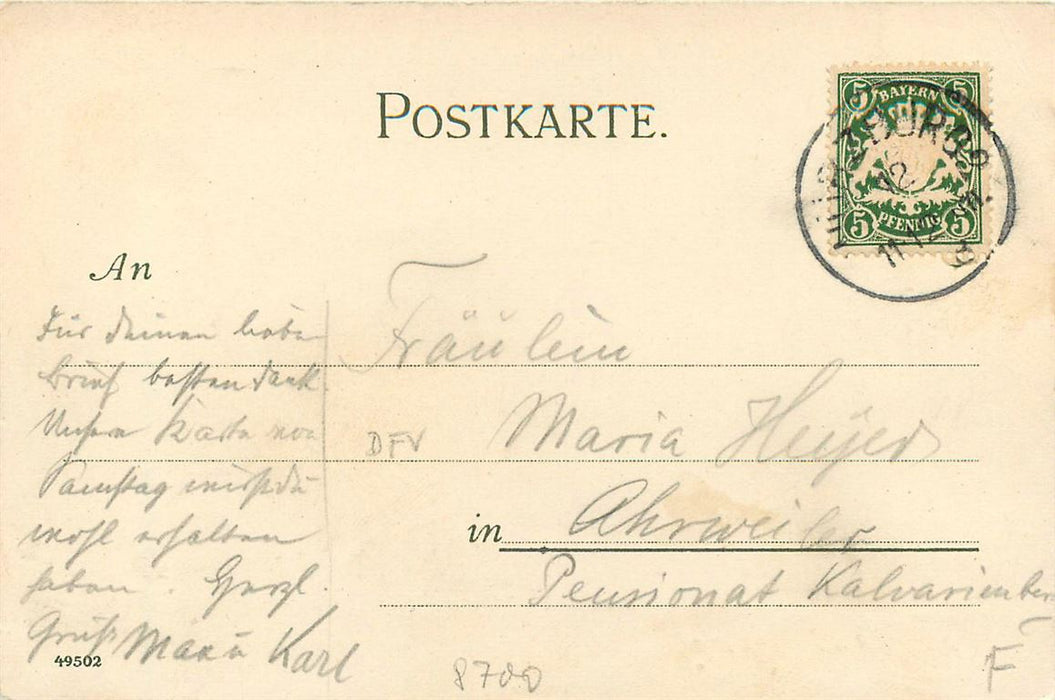 POSTKARTE.
5 BAYERN 5
5 PFENNIG 5
WÜRZBURG 2
12
11 12
An
Fräulein
Maria Heyer
in Ahrweiler
Pensionat Kalvarienberg
Für deinen liebe
Brief besten Dank.
Unsere Karte von
Samstag wirst du
wohl erhalten
haben. Herzl.
Gruß Max u Karl
DFV
49502
8700
F